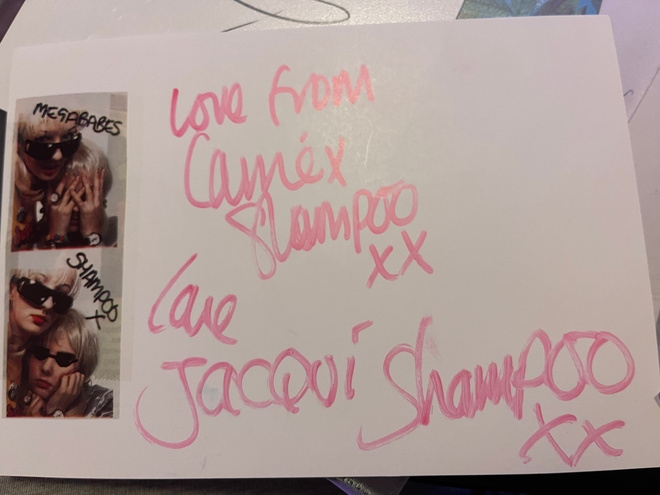 MEGABABES
SHAMPOO
X
Love From
Carrie x
Shampoo
xx
Love
JACQUI Shampoo
xx